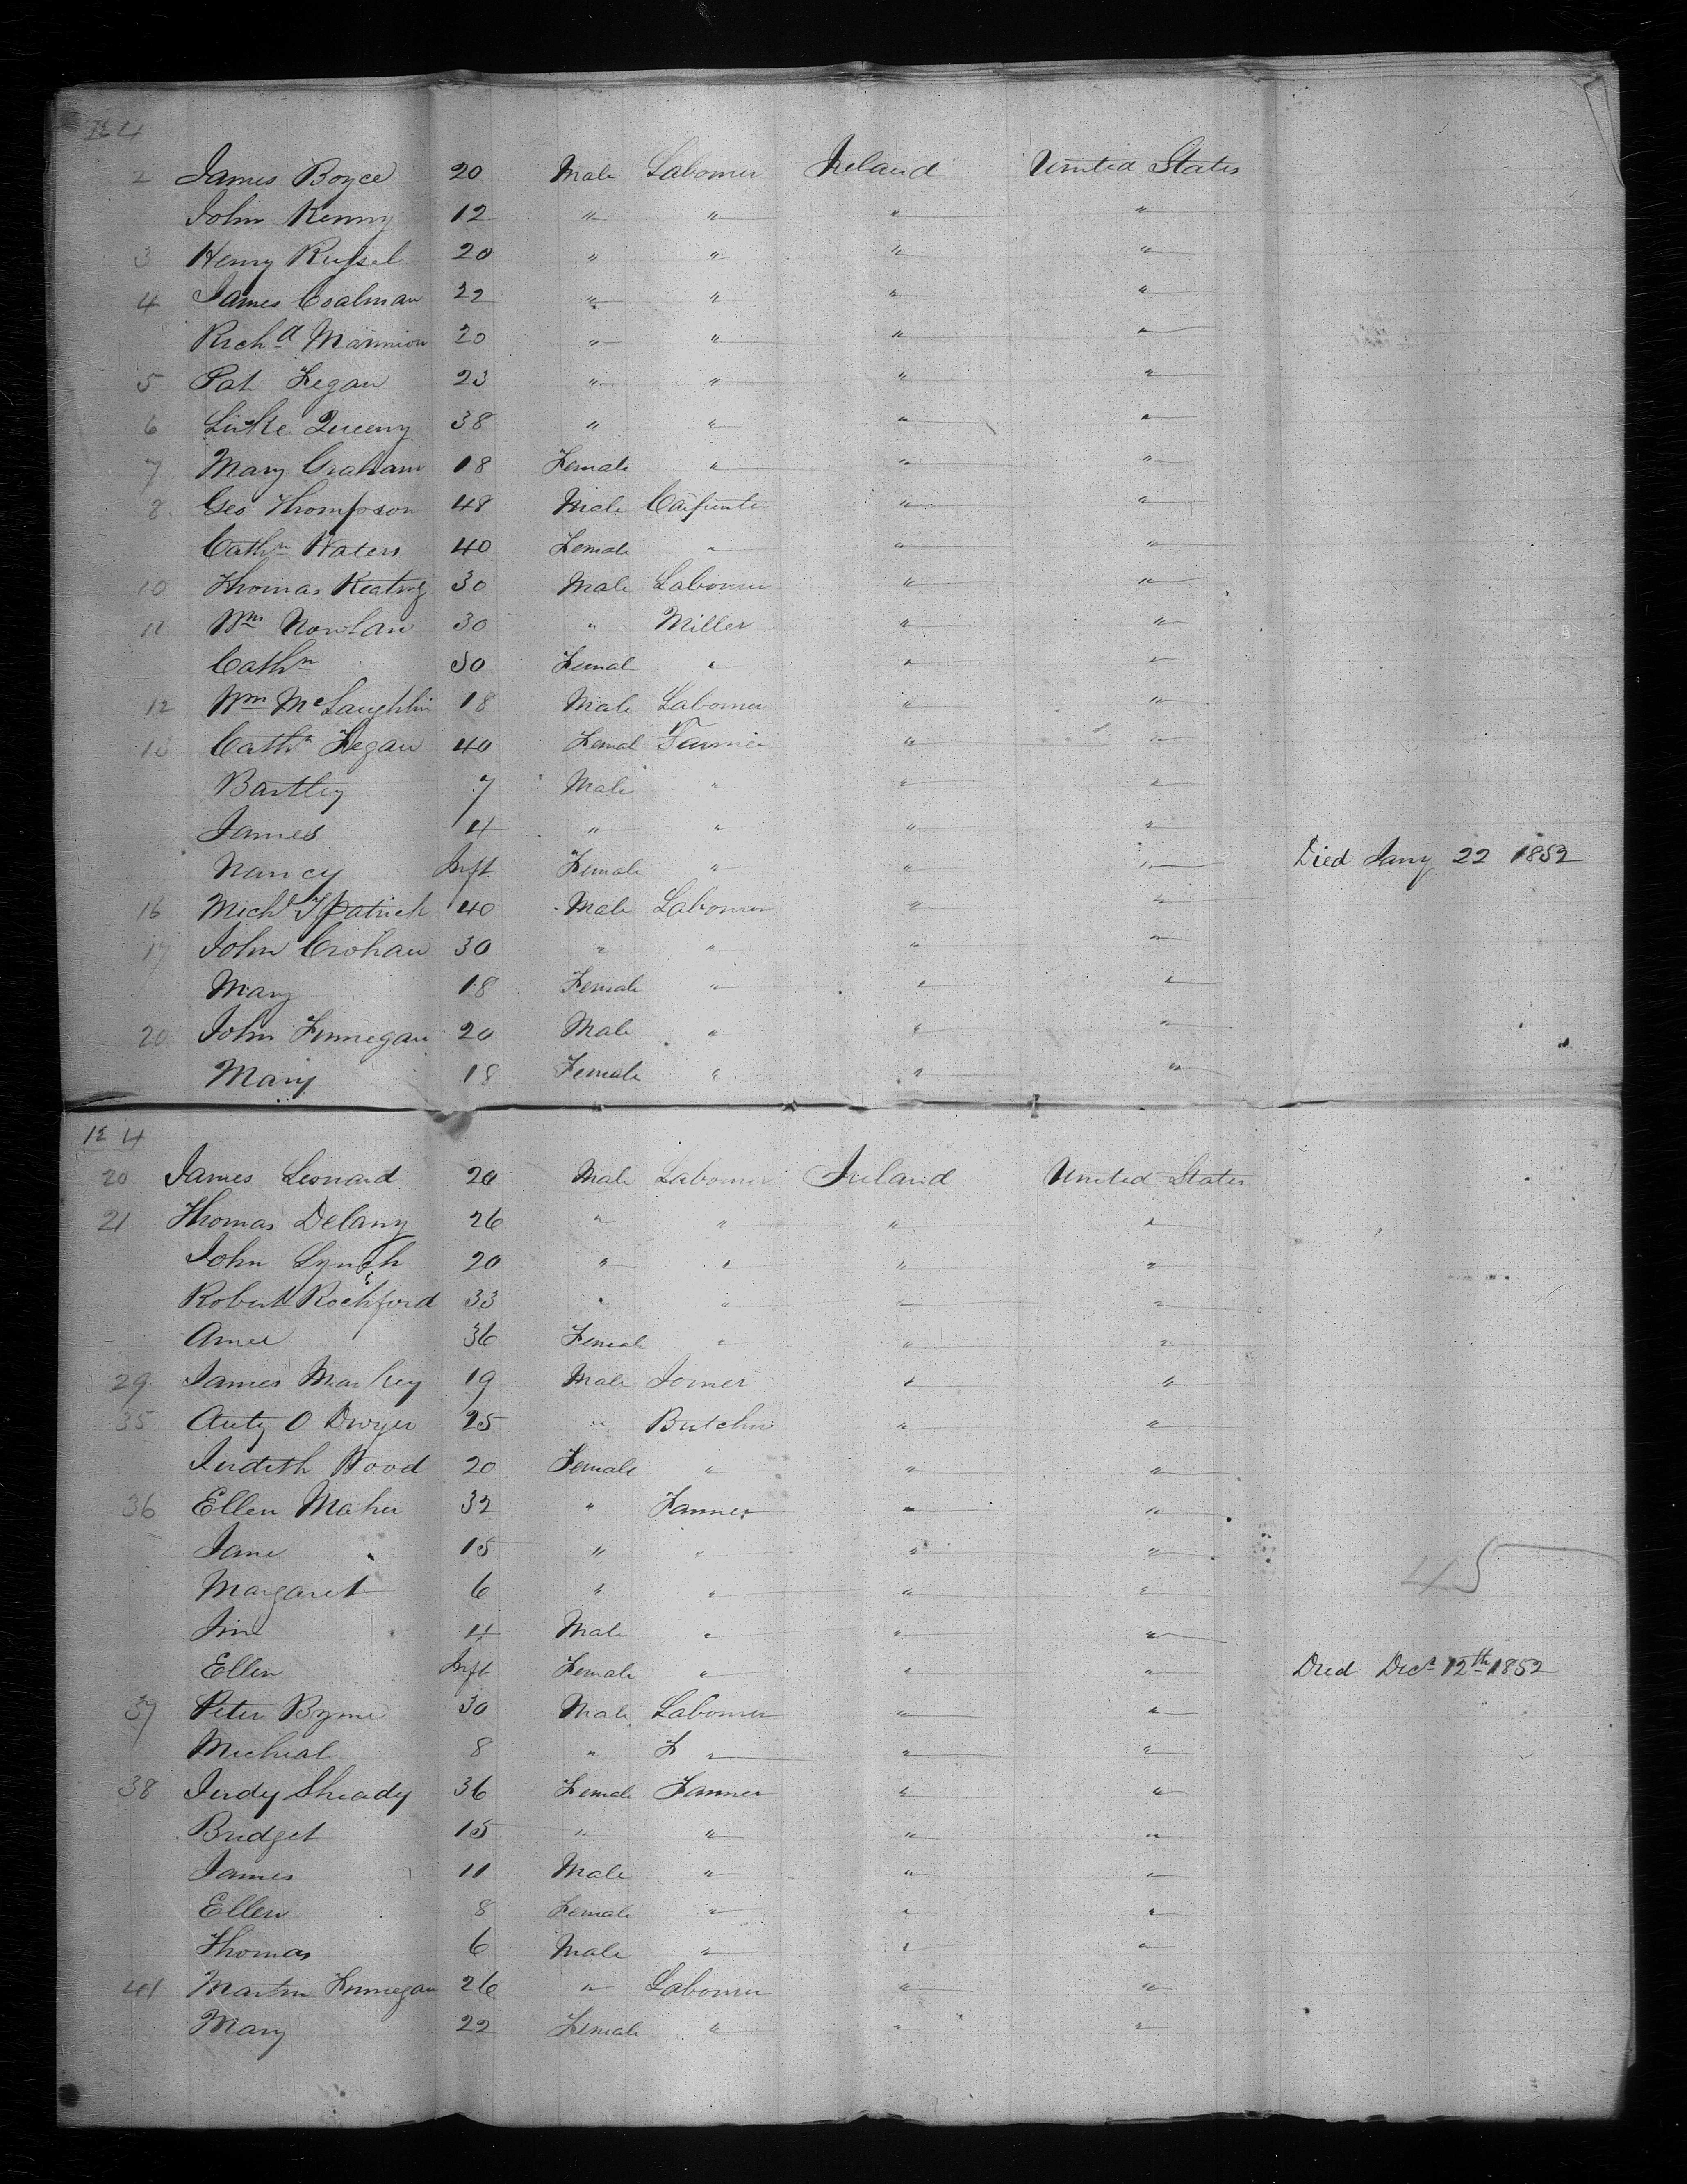 4
2 James Boyce 20 Male Labourer Ireland United States
John Kenny 12 " " " "
3 Henry Russel 20 " " " "
4 James Coalman 22 " " " "
Richd Mannion 20 " " " "
5 Pat Fegan 23 " " " "
6 Luke Queeny 38 " " " "
7 Mary Graham 18 Female " " "
8 Geo Thompson 48 Male Carpenter " "
Cathn Waters 40 Female " " "
10 Thomas Keating 30 Male Labourer " "
11 Wm Nowlan 30 " Miller " "
Cathn 30 Femal " " "
12 Wm McLaughlin 18 Male Labourer " "
13 Cathn Fegan 40 Femal Farmer " "
Bartley 7 Male " " "
James 4 " " " "
Nancy Inft Female " " " Died Jany 22 1852
16 Michl Fpatrick 40 Male Labourer " "
17 John Crohan 30 " " " "
Mary 18 Female " " "
20 John Finnegan 20 Male " " "
Mary 18 Female " " "
4
20 James Leonard 20 Male Labourer Ireland United States
21 Thomas Delany 26 " " " "
John Lynch 20 " " " "
Robert Rochford 33 " " " "
36 Female " " "
29 James Markey 19 Male Joiner " "
35 O Dwyer 25 " Butcher " "
Judith Wood 20 Female " " "
36 Ellen Maher 32 " Farmer " "
Jane 15 " " " "
Margaret 6 " " " " 45
Jim 4 Male " " "
Ellen Inft Female " " " Died Decr 12th 1852
37 Peter Byrne 30 Male Labourer " "
Micheal 8 " F " " "
38 Judy Sheady 36 Female Farmer " "
Bridget 15 " " " "
James 11 Male " " "
Ellen 8 Female " " "
Thomas 6 Male " " "
41 Martin Finnegan 26 " Labourer " "
Mary 22 Female " " "